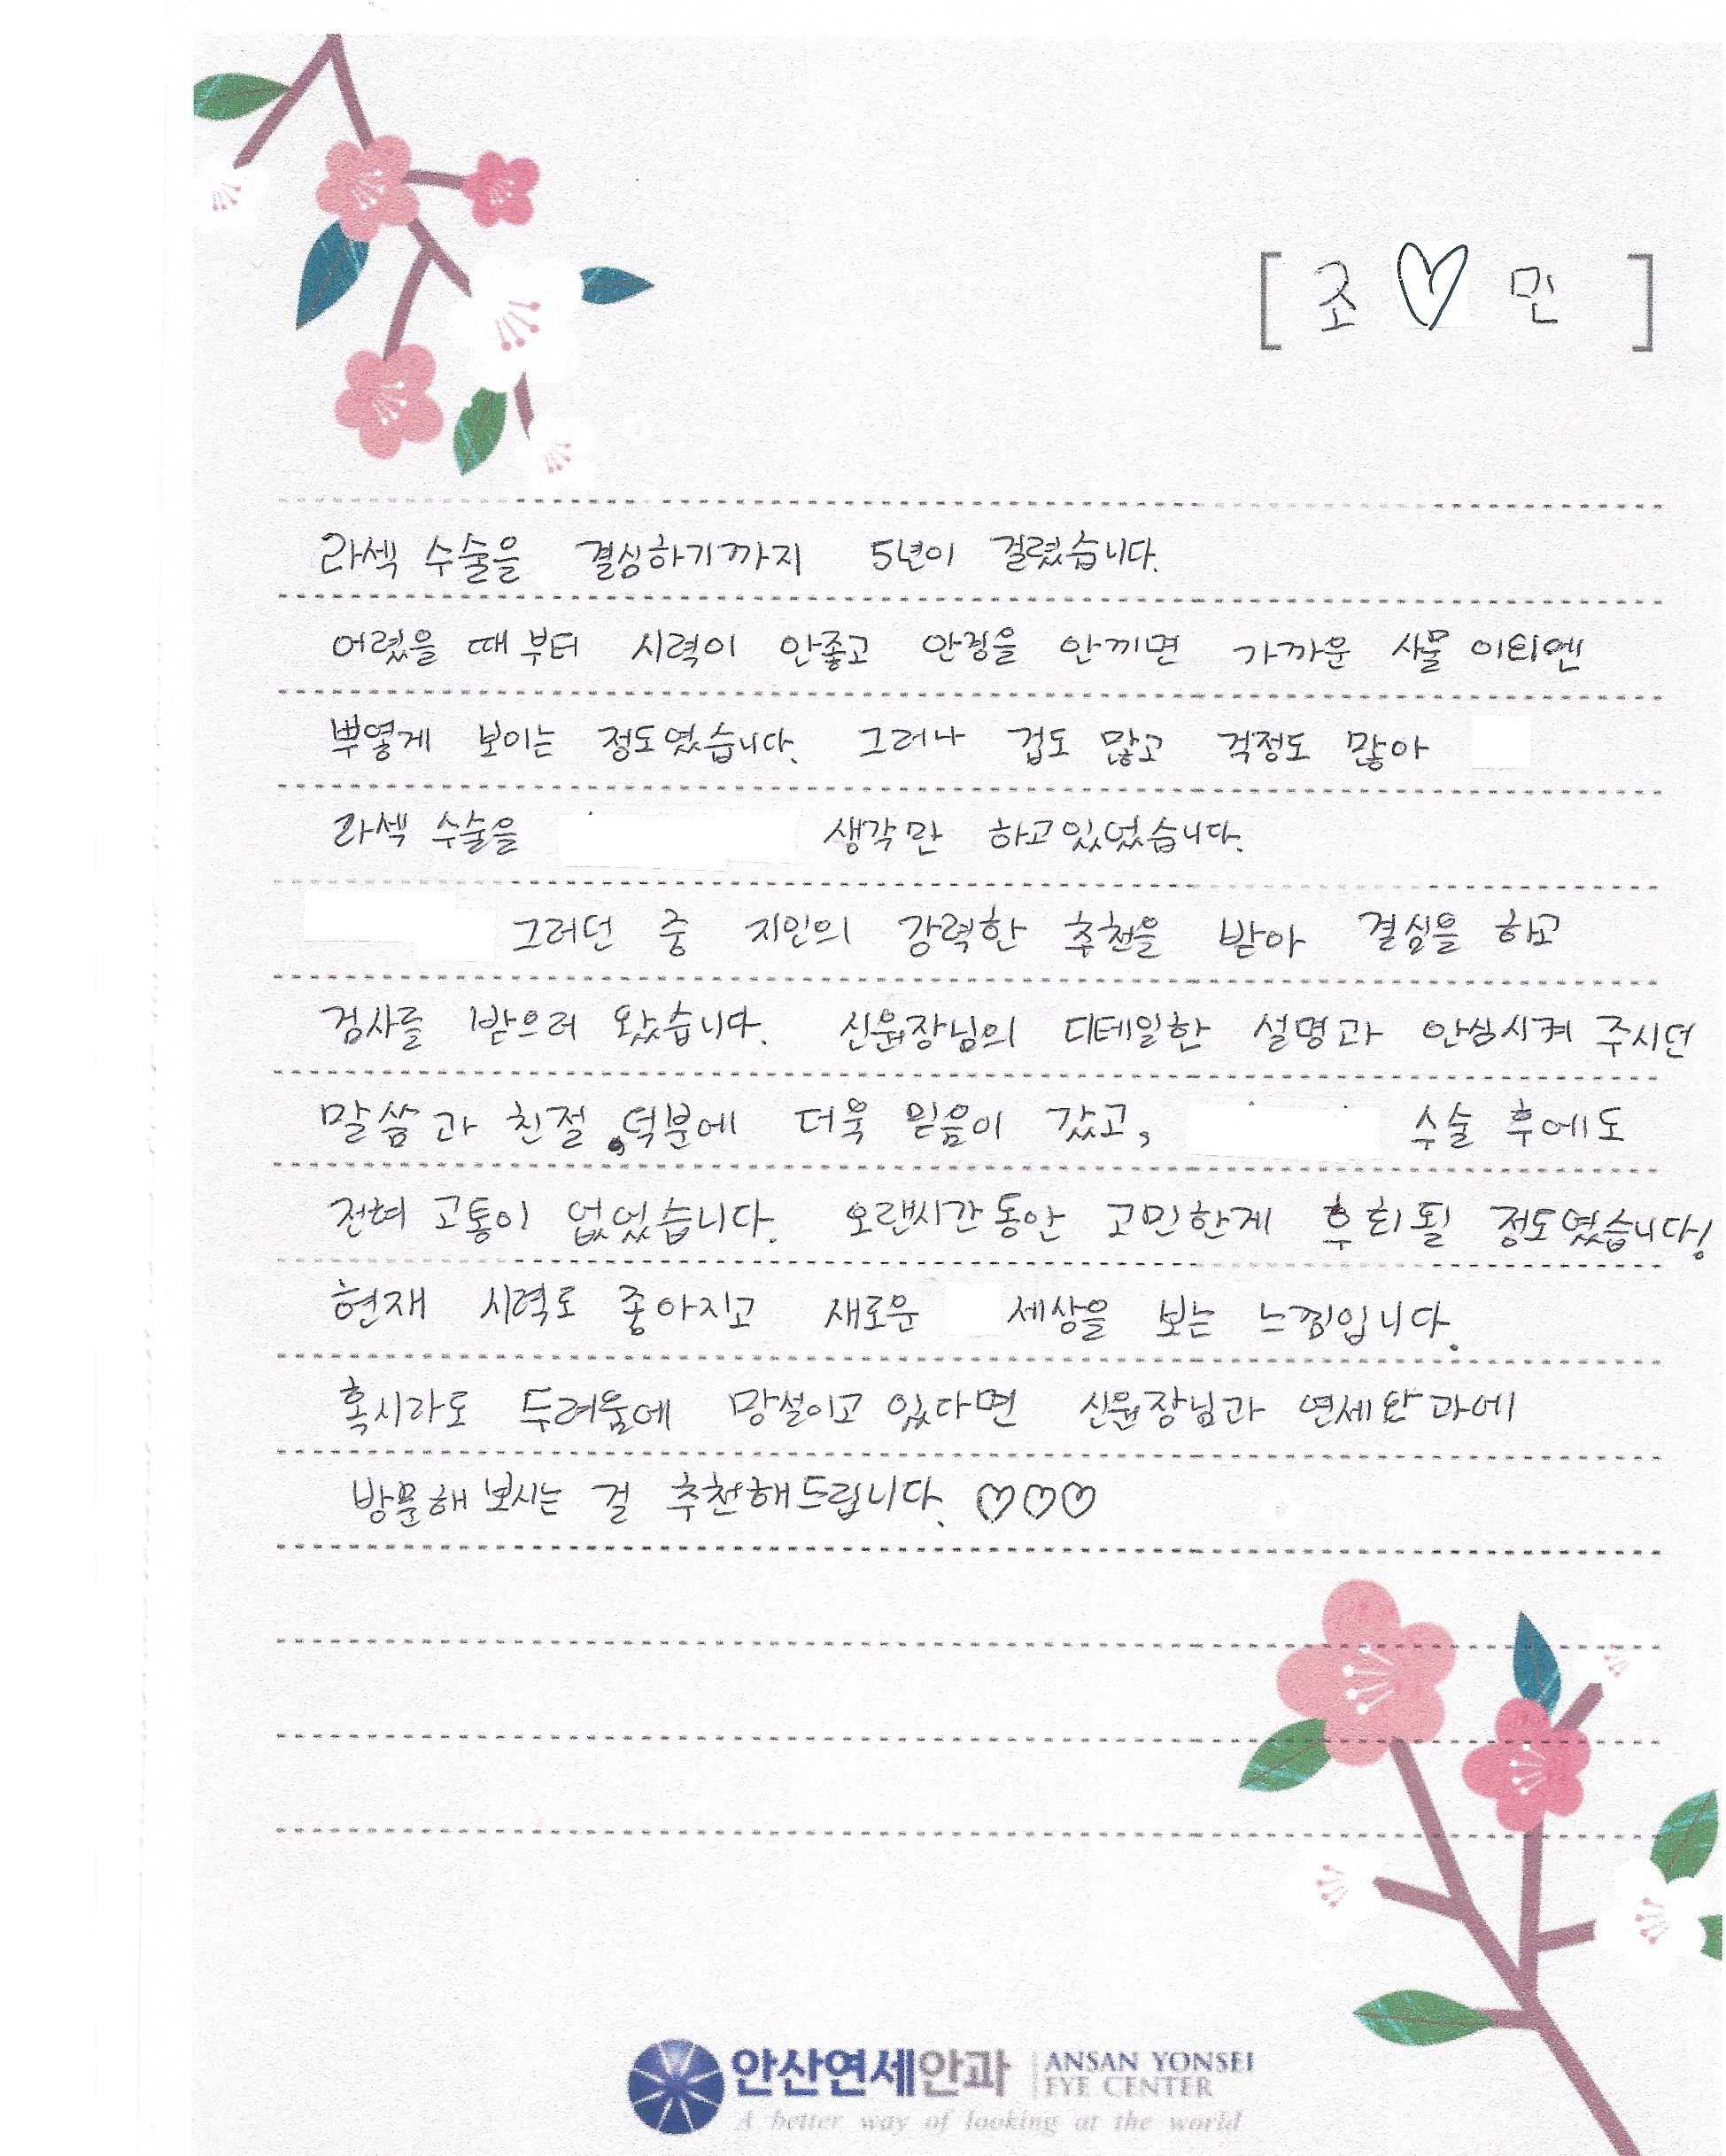 [ 조 ♡ 민 ]
라섹 수술을 결심하기까지 5년이 걸렸습니다.
어렸을 때부터 시력이 안좋고 안경을 안끼면 가까운 사물 이외엔
뿌옇게 보이는 정도였습니다. 그러나 겁도 많고 걱정도 많아
라섹 수술을 생각만 하고있었습니다.
그러던 중 지인의 강력한 추천을 받아 결심을 하고
검사를 받으러 왔습니다. 신원장님의 디테일한 설명과 안심시켜 주시던
말씀과 친절 덕분에 더욱 믿음이 갔고, 수술 후에도
전혀 고통이 없었습니다. 오랜시간동안 고민한게 후회될 정도였습니다!
현재 시력도 좋아지고 새로운 세상을 보는 느낌입니다.
혹시라도 두려움에 망설이고 있다면 신원장님과 연세안과에
방문해 보시는 걸 추천해드립니다. ♡♡♡
안산연세안과 ANSAN YONSEI
EYE CENTER
A better way of looking at the world